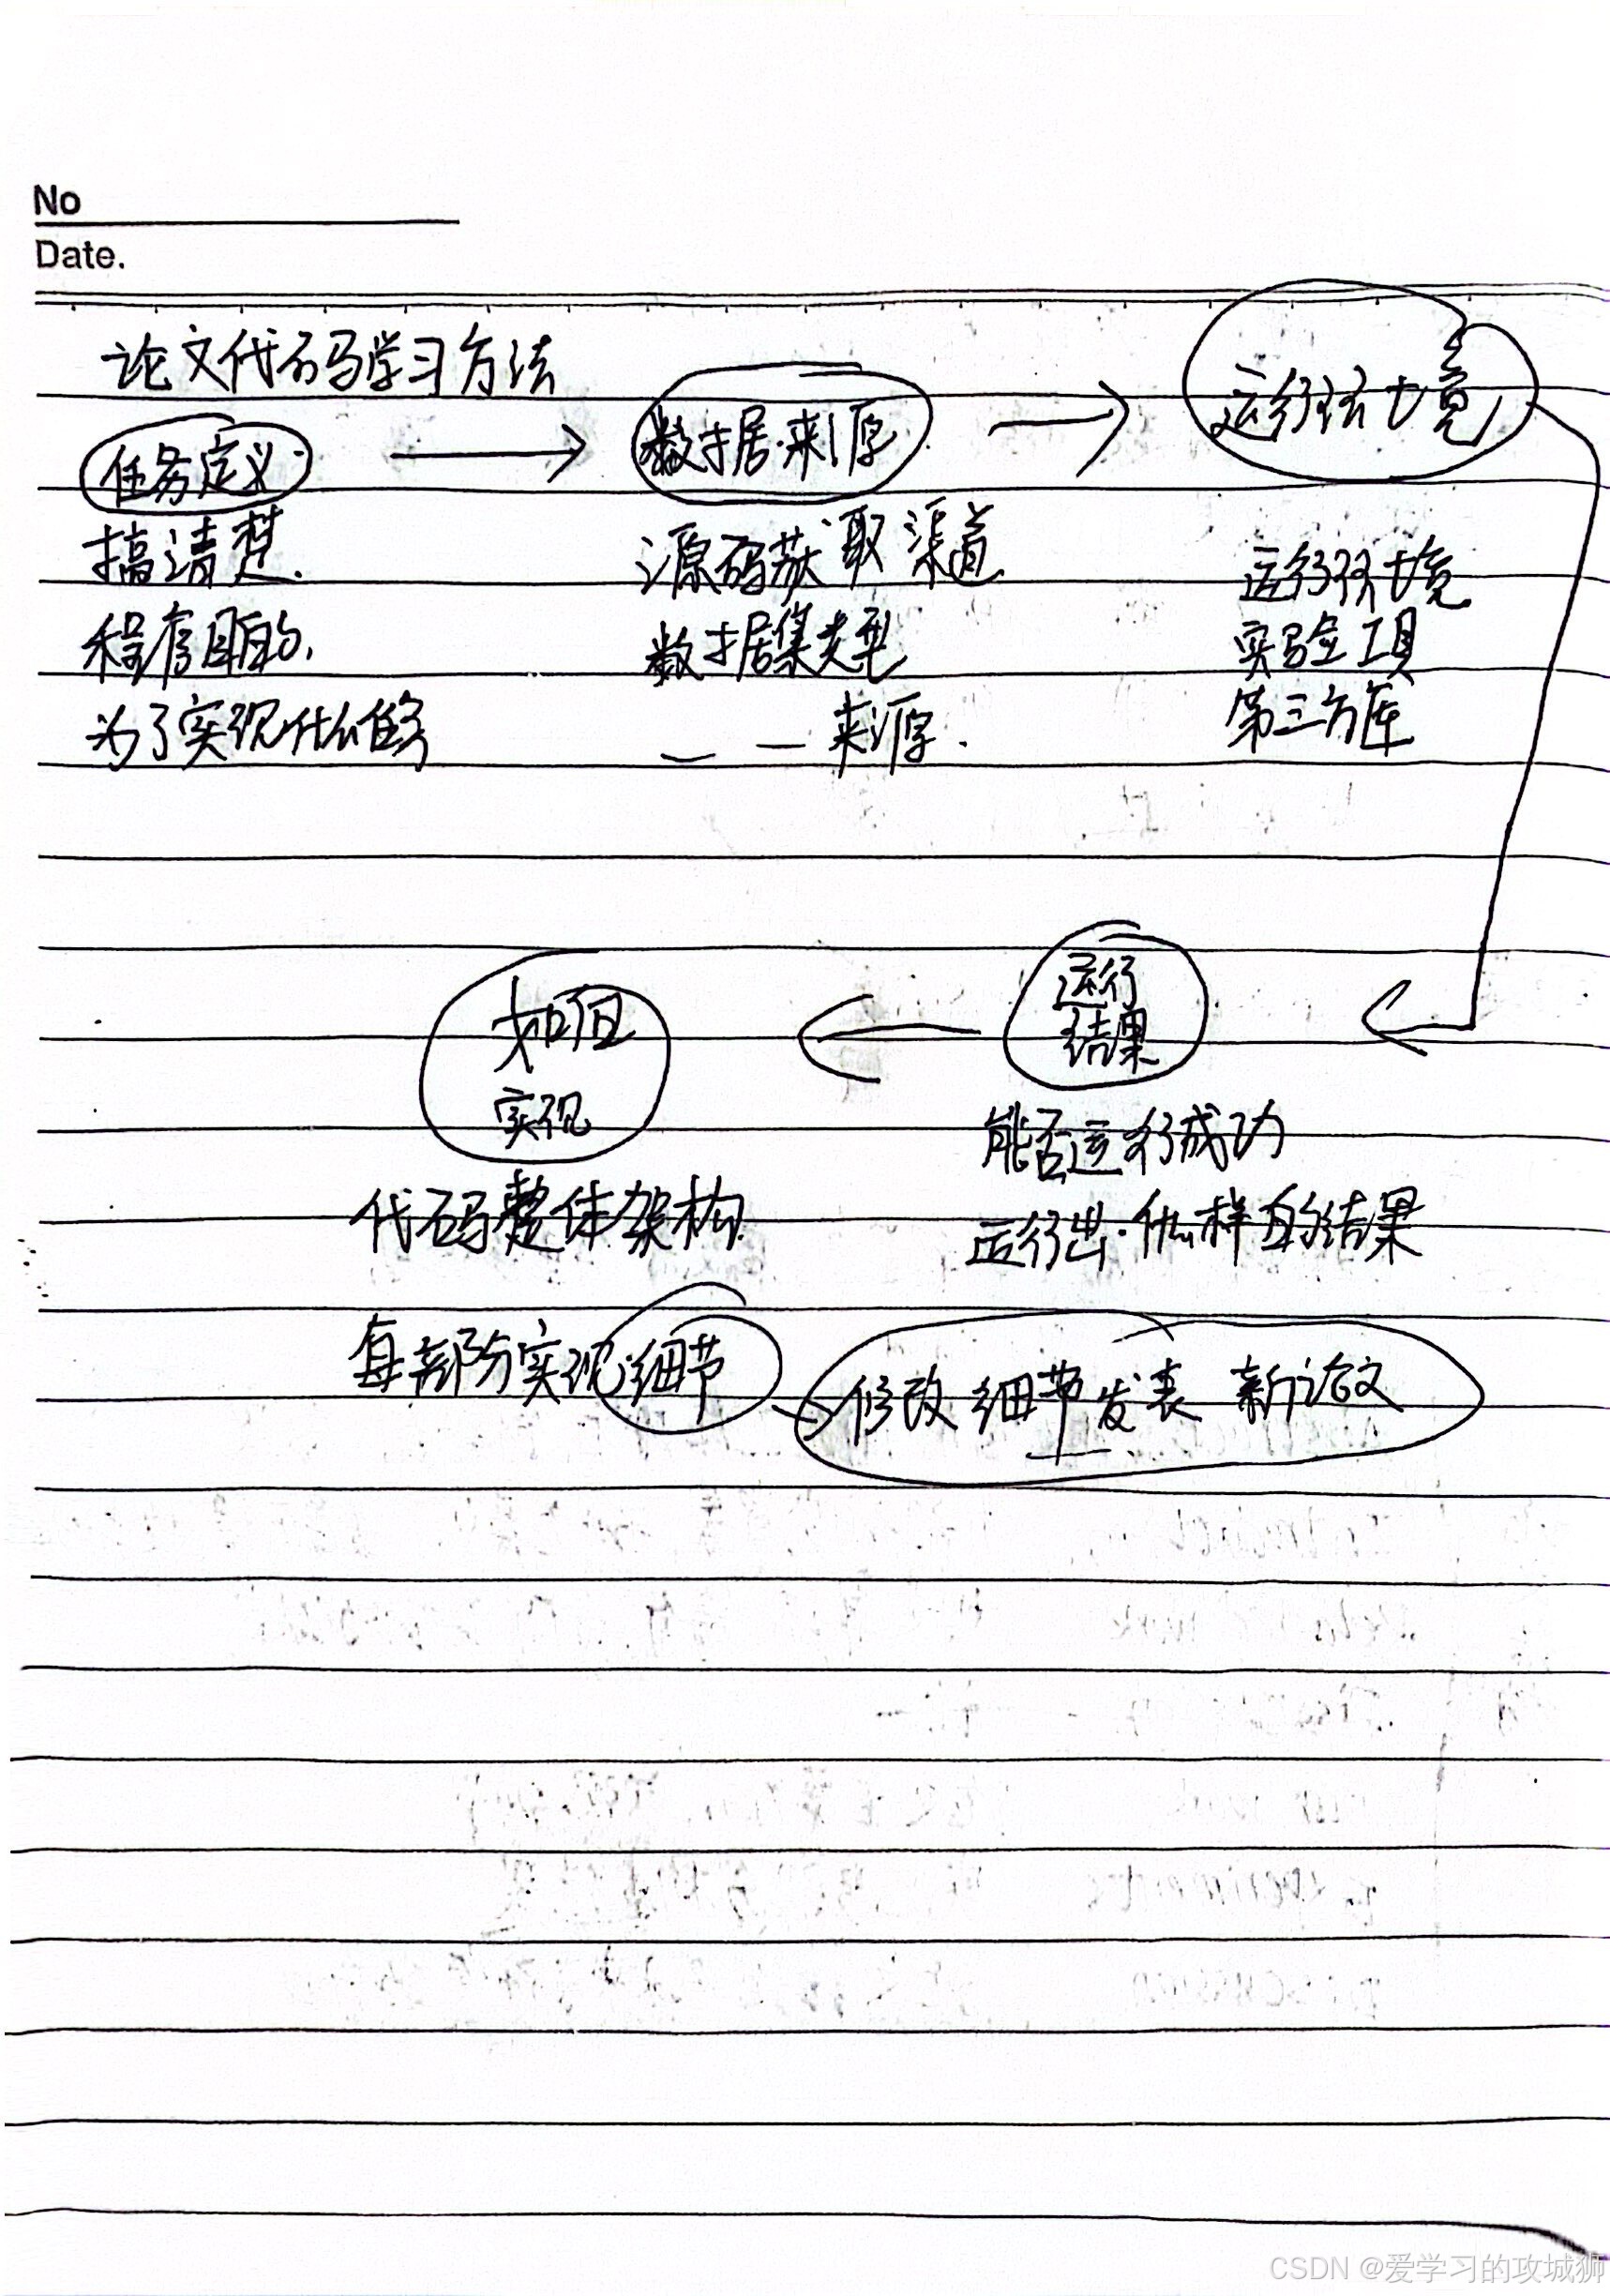 No
Date.
论文代码学习方法
任务定义
数据来源
运行环境
搞清楚
程序目的
为了实现什么任务
源码获取渠道
数据集类型
— — 来源.
运行环境
实验工具
第三方库
如何
实现
运行
结果
代码整体架构
每部分实现细节
能否运行成功
运行出什么样的结果
修改细节发表 新论文
CSDN @爱学习的攻城狮